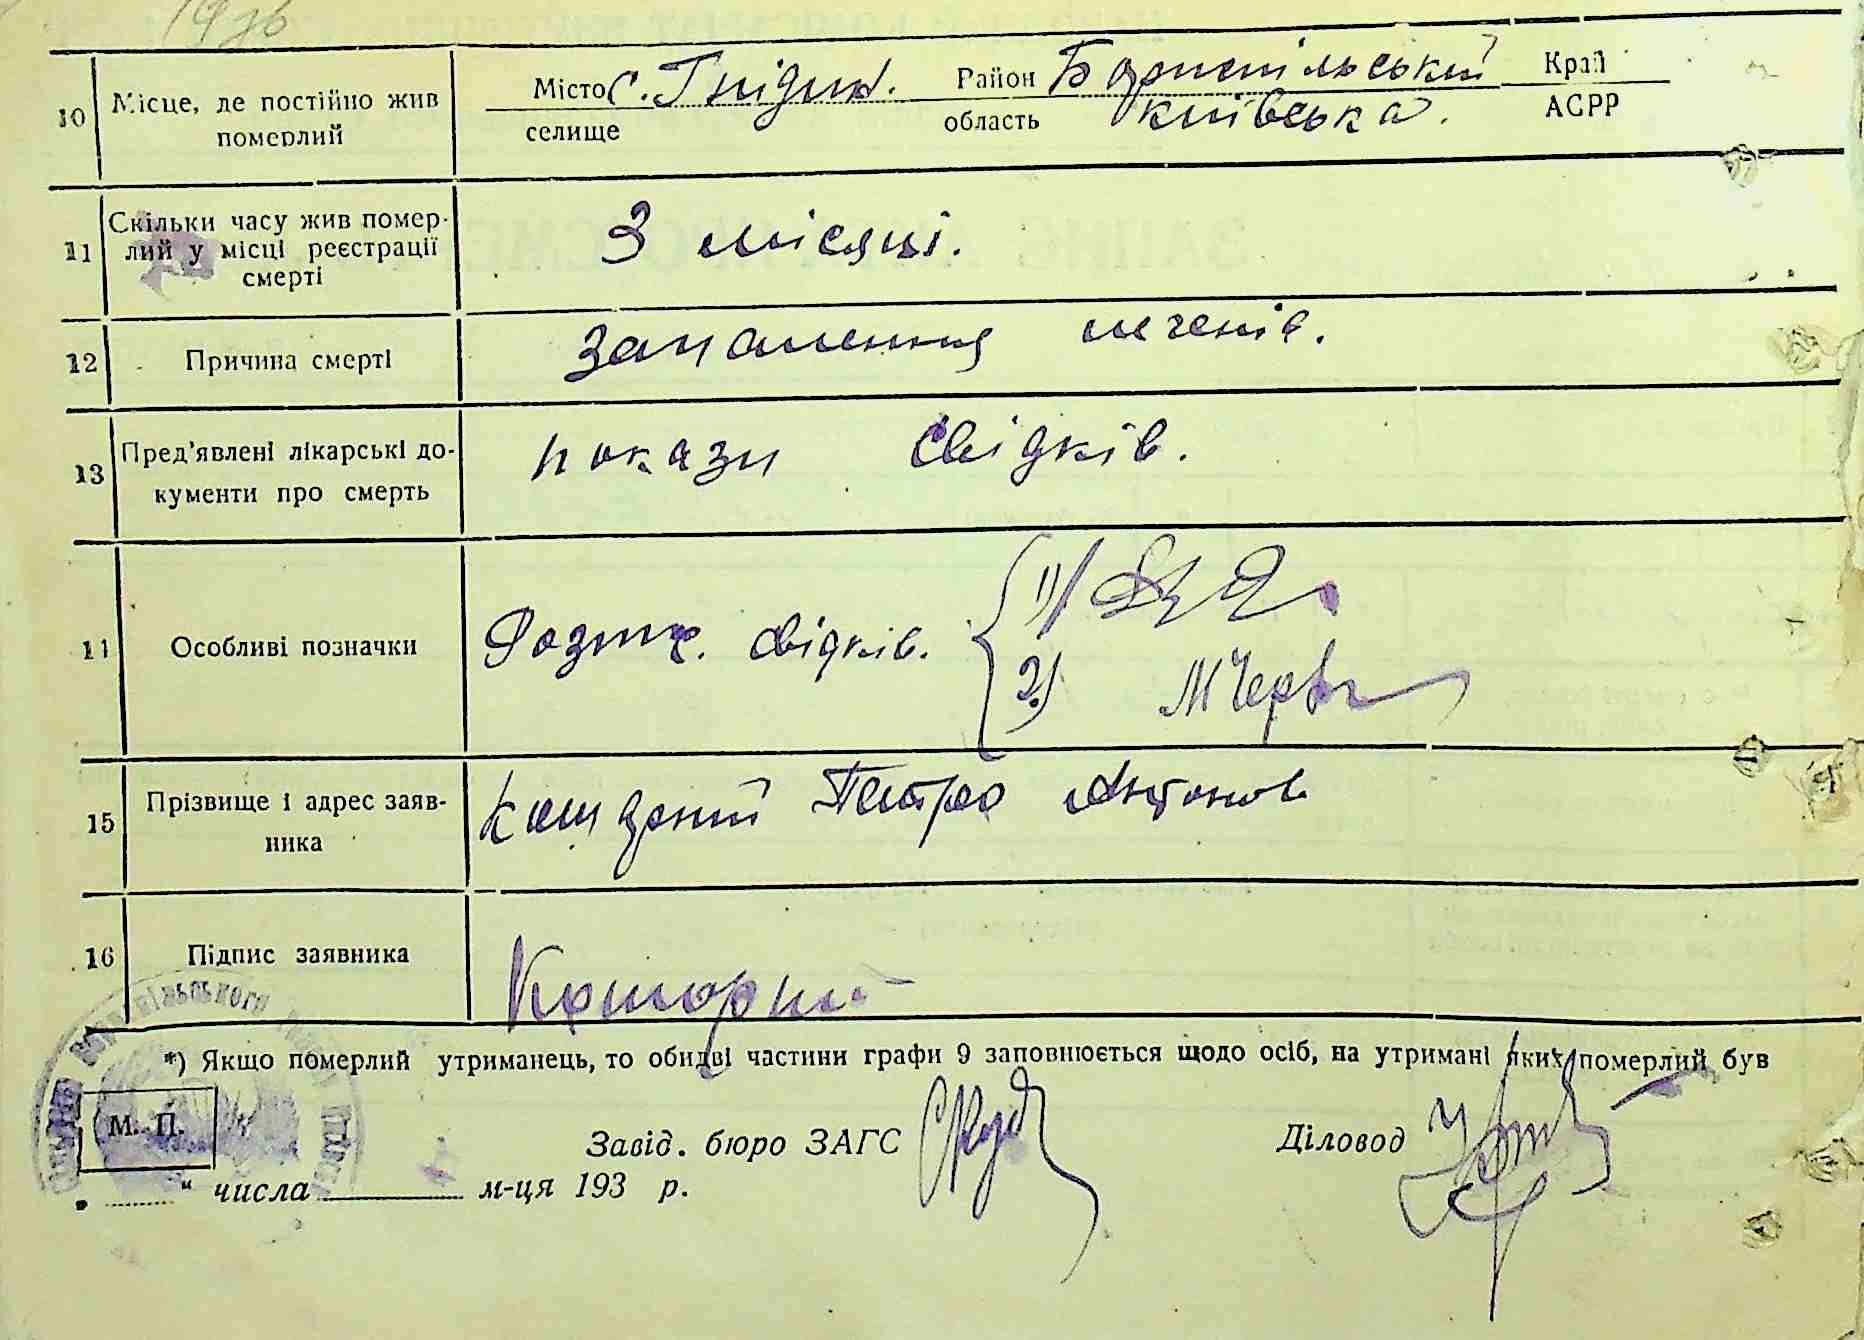 10 Місце, де постійно жив
померлий
Місто с. Гнідин. Район Бориспільський Край
селище область київська. АСРР
11 Скільки часу жив помер-
лий у місці реєстрації
смерті
3 місяці.
12 Причина смерті
запалення легенів.
13 Пред'явлені лікарські до-
кументи про смерть
покази свідків.
11 Особливі позначки
Розпис. свідків.
1)
2)
15 Прізвище і адрес заяв-
ника
Петро Антонов
16 Підпис заявника
*) Якщо померлий утриманець, то обидві частини графи 9 заповнюється щодо осіб, на утримані яких померлий був
М. П.
Завід. бюро ЗАГС
Діловод
„ “ числа м-ця 193 р.